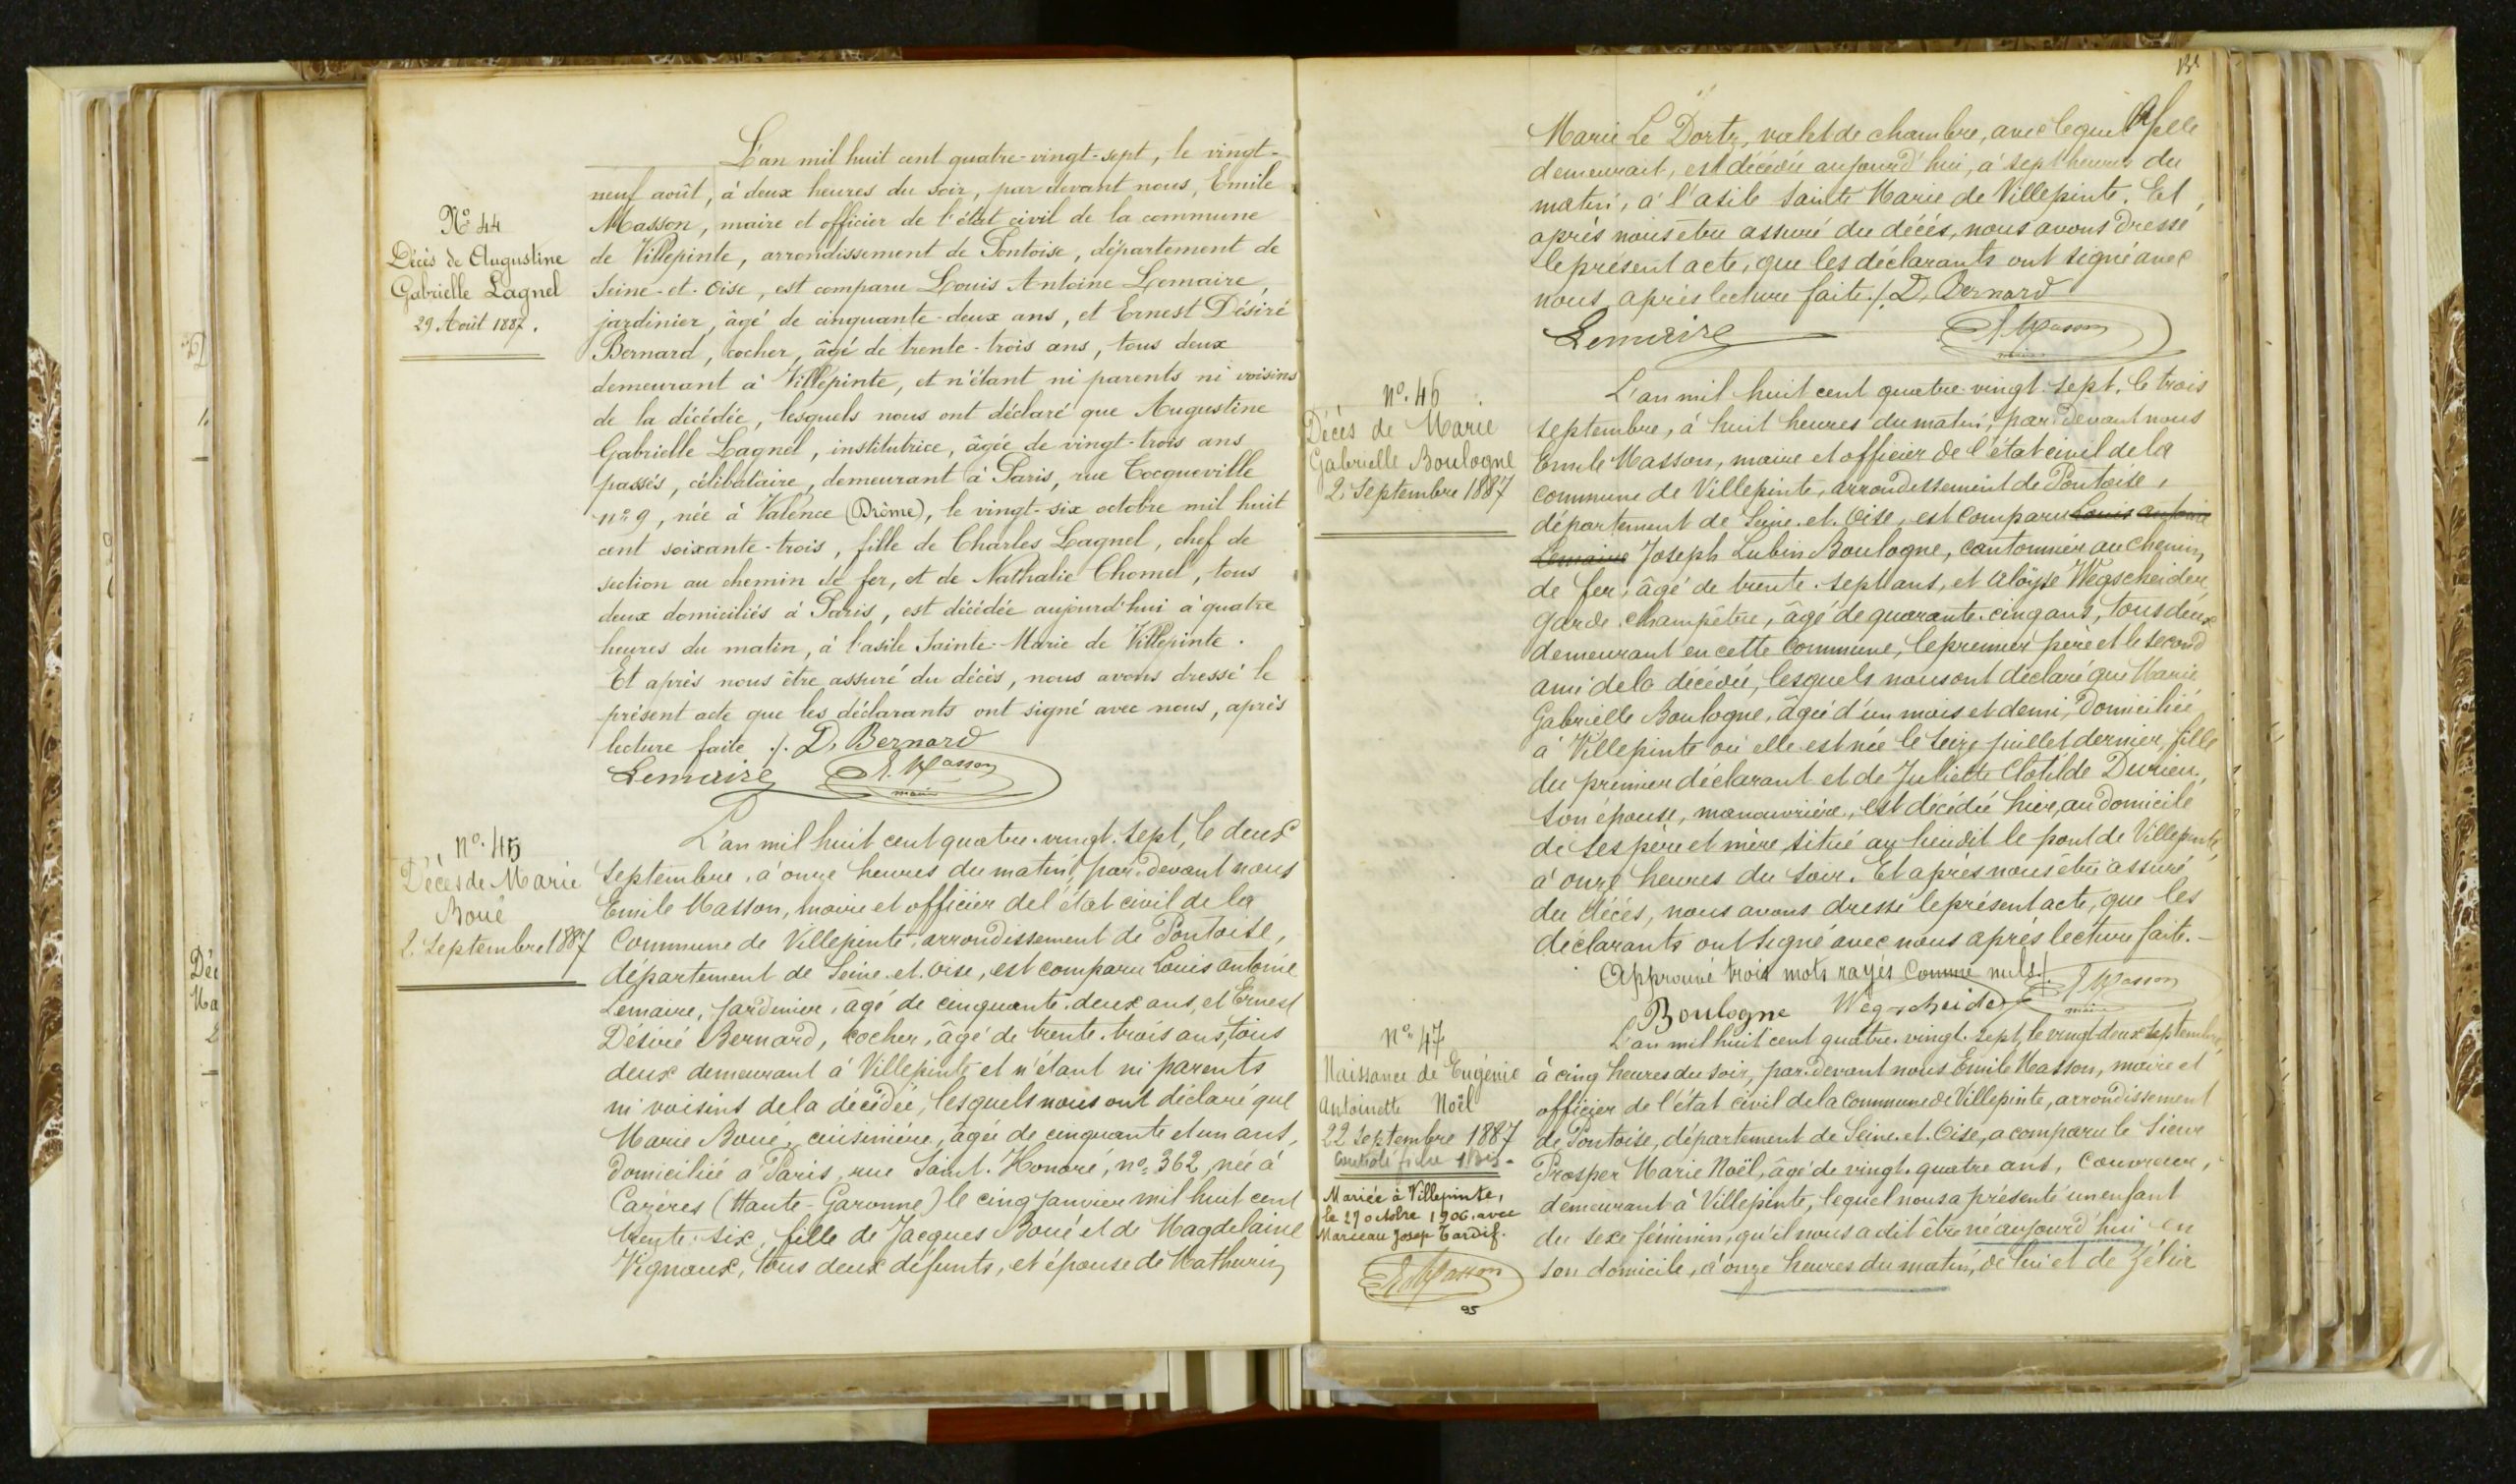 L'an mil huit cent quatre-vingt-sept, le vingt-
neuf août, à deux heures du soir, par devant nous, Emile
Masson, maire et officier de l'état civil de la commune
N° 44
de Villepinte, arrondissement de Pontoise, département de
Décès de Augustine
Gabrielle Lagnel
29 Août 1887.
Seine-et-Oise, est comparu Louis Antoine Lemaire,
jardinier, âgé de cinquante-deux ans, et Ernest Désiré
Bernard, cocher, âgé de trente-trois ans, tous deux
demeurant à Villepinte, et n'étant ni parents ni voisins
de la décédée, lesquels nous ont déclaré que Augustine
Gabrielle Lagnel, institutrice, âgée de vingt-trois ans
passés, célibataire, demeurant à Paris, rue Tocqueville
n° 9, née à Valence (Drôme), le vingt-six octobre mil huit
cent soixante-trois, fille de Charles Lagnel, chef de
section au chemin de fer, et de Nathalie Chomel, tous
deux domiciliés à Paris, est décédée aujourd'hui à quatre
heures du matin, à l'asile Sainte-Marie de Villepinte.
Et après nous être assuré du décès, nous avons dressé le
présent acte que les déclarants ont signé avec nous, après
lecture faite ./. D. Bernard
Lemaire E. Masson
maire
n°. 45
Décès de Marie
Boué
2 Septembre 1887
L'an mil huit cent quatre-vingt-sept, le deux
Septembre, à onze heures du matin, par devant nous
Emile Masson, maire et officier de l'état civil de la
Commune de Villepinte, arrondissement de Pontoise,
département de Seine-et-Oise, est comparu Louis Antoine
Lemaire, Jardinier, âgé de cinquante-deux ans, et Ernest
Désiré Bernard, cocher, âgé de trente-trois ans, tous
deux demeurant à Villepinte et n'étant ni parents
ni voisins de la décédée, lesquels nous ont déclaré que
Marie Boué, cuisinière, âgée de cinquante et un ans,
domiciliée à Paris, rue Saint-Honoré, n°. 362, née à
Cazères (Haute-Garonne) le cinq Janvier mil huit cent
trente-six, fille de Jacques Boué et de Magdelaine
Vignaux, tous deux défunts, et épouse de Mathurin
Marie Le Dortz, valet de chambre, avec lequel elle
demeurait, est décédée aujourd'hui, à sept heures du
matin, à l'asile Sainte Marie de Villepinte. Et
après nous être assuré du décès, nous avons dressé
le présent acte, que les déclarants ont signé avec
nous, après lecture faite ./. D. Bernard
Lemaire E. Masson
maire
n°. 46
Décès de Marie
Gabrielle Boulogne
2 Septembre 1887
L'an mil huit cent quatre-vingt-sept, le trois
septembre, à huit heures du matin, par devant nous
Emile Masson, maire et officier de l'état civil de la
commune de Villepinte, arrondissement de Pontoise,
département de Seine-et-Oise, est comparu Louis Antoine
Lemaire Joseph Lubin Boulogne, cantonnier au chemin
de fer, âgé de trente-sept ans, et Aloïse Wegscheider
garde-champêtre, âgé de quarante-cinq ans, tous deux
demeurant en cette commune, le premier père et le second
ami de la décédée, lesquels nous ont déclaré que Marie
Gabrielle Boulogne, âgée d'un mois et demi, domiciliée
à Villepinte où elle est née le seize juillet dernier, fille
du premier déclarant et de Juliette Clotilde Durieu,
son épouse, manouvrière, est décédée hier, au domicile
de ses père et mère, situé au lieudit le pont de Villepinte,
à onze heures du soir. Et après nous être assuré
du décès, nous avons dressé le présent acte, que les
déclarants ont signé avec nous après lecture faite. -
Approuvé trois mots rayés comme nuls ./. E. Masson
Boulogne Wegscheider maire
n° 47
Naissance de Eugénie
Antoinette Noël
22 Septembre 1887
Mariée à Villepinte,
le 27 octobre 1906, avec
Marceau Josep Tardif.
E. Masson
95
L'an mil huit cent quatre-vingt-sept, le vingt-deux septembre,
à cinq heures du soir, par devant nous Emile Masson, maire et
officier de l'état civil de la Commune de Villepinte, arrondissement
de Pontoise, département de Seine-et-Oise, a comparu le Sieur
Prosper Marie Noël, âgé de vingt-quatre ans, Couvreur,
demeurant à Villepinte, lequel nous a présenté un enfant
du sexe féminin, qu'il nous a dit être né aujourd'hui en
son domicile, à onze heures du matin, de lui et de Zélie